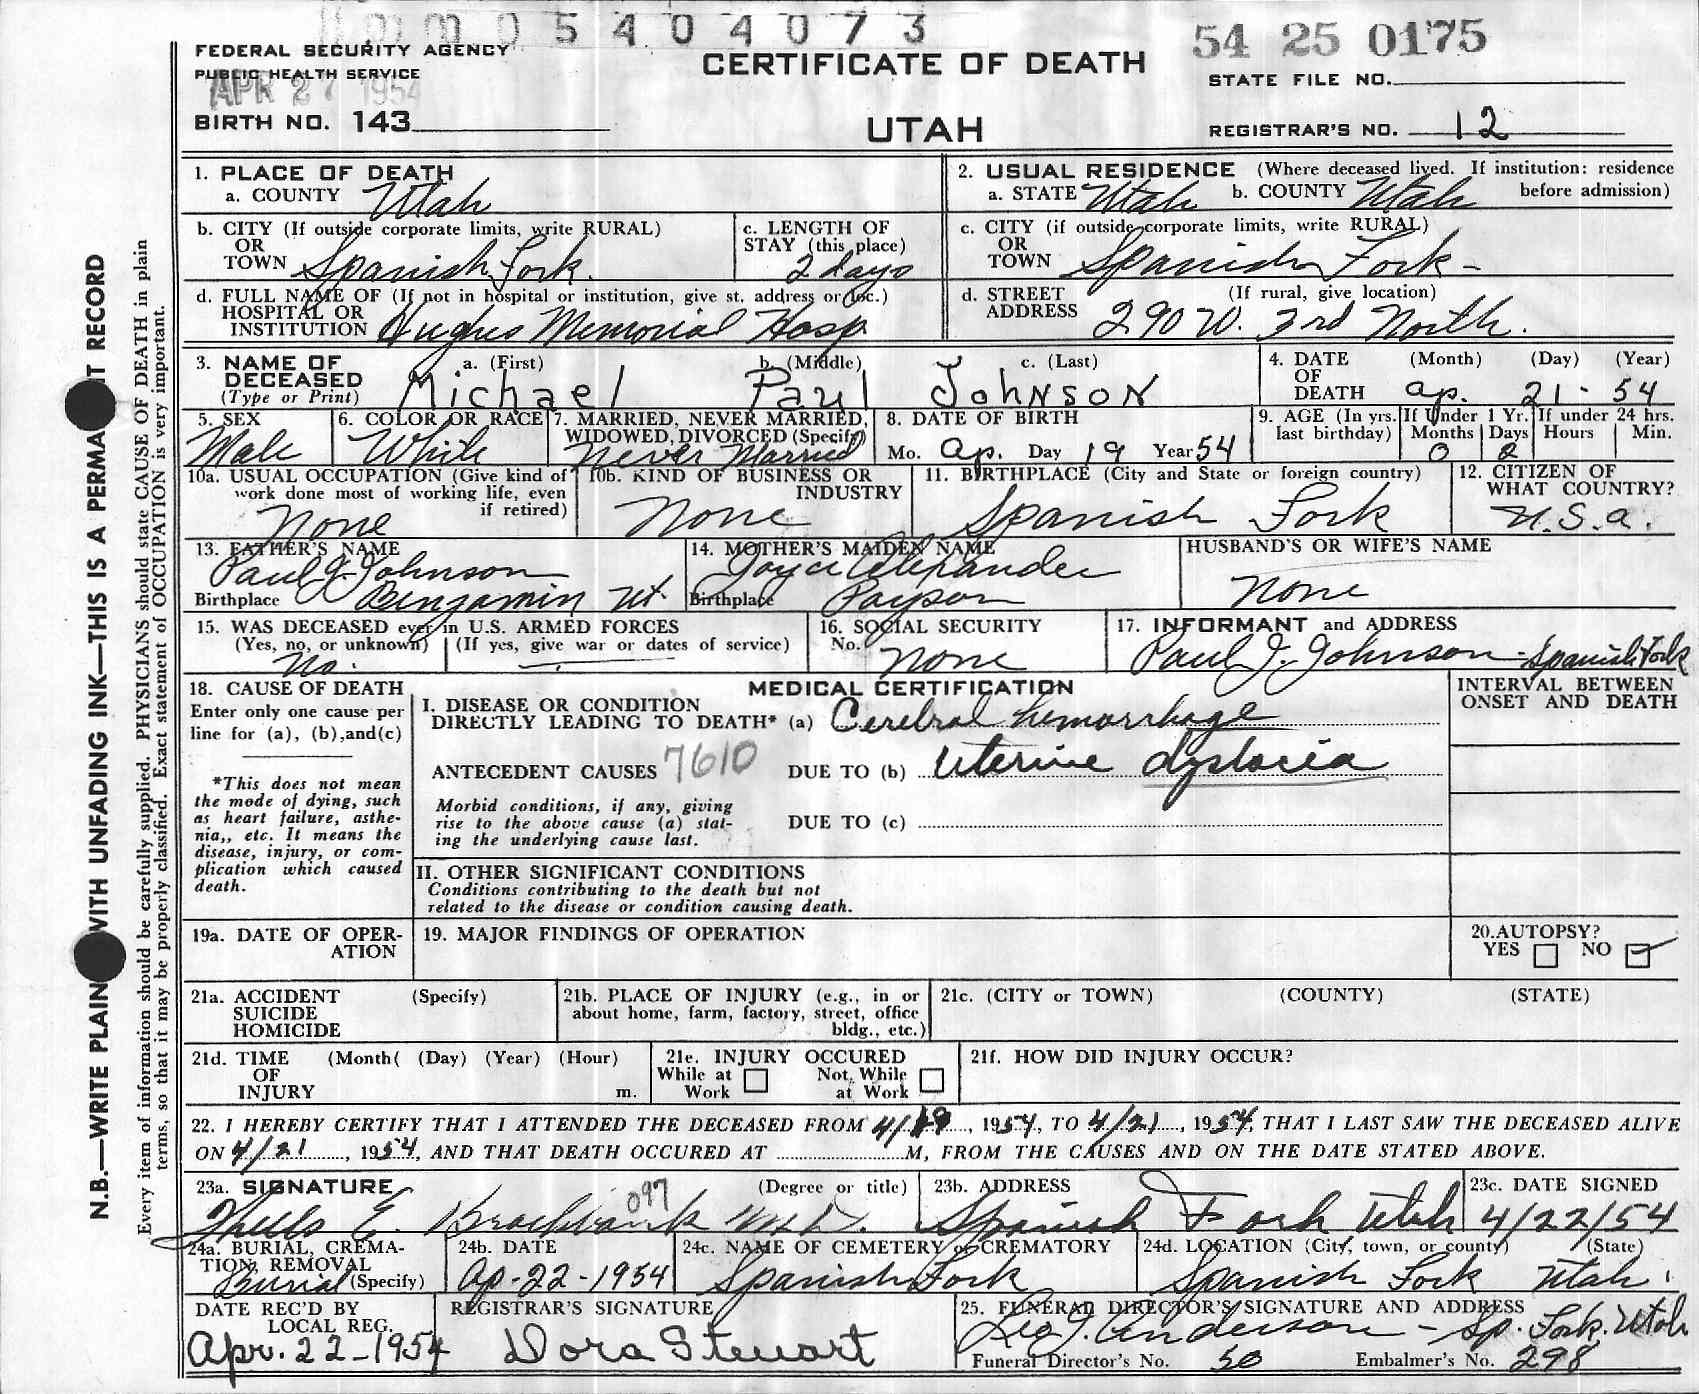 0 5 4 0 4 0 7 3
54 25 0175
FEDERAL SECURITY AGENCY
PUBLIC HEALTH SERVICE
APR 27 1954
CERTIFICATE OF DEATH
STATE FILE NO.
BIRTH NO. 143
UTAH
REGISTRAR'S NO. 12
N.B.—WRITE PLAIN WITH UNFADING INK—THIS IS A PERMA T RECORD
Every item of information should be carefully supplied. PHYSICIANS should state CAUSE OF DEATH in plain
terms, so that it may be properly classified. Exact statement of OCCUPATION is very important.
1. PLACE OF DEATH
a. COUNTY Utah
2. USUAL RESIDENCE (Where deceased lived. If institution: residence
a. STATE Utah b. COUNTY Utah before admission)
b. CITY (If outside corporate limits, write RURAL)
OR
TOWN Spanish Fork.
c. LENGTH OF
STAY (this place)
2 days
c. CITY (if outside corporate limits, write RURAL)
OR
TOWN Spanish Fork-
d. FULL NAME OF (If not in hospital or institution, give st. address or loc.)
HOSPITAL OR
INSTITUTION Hughes Memorial Hosp
d. STREET (If rural, give location)
ADDRESS 290 W. 3rd North.
3. NAME OF a. (First) b. (Middle) c. (Last)
DECEASED
(Type or Print) Michael Paul Johnson
4. DATE (Month) (Day) (Year)
OF
DEATH Ap. 21- 54
5. SEX
Male
6. COLOR OR RACE
White
7. MARRIED, NEVER MARRIED,
WIDOWED, DIVORCED (Specify)
Never Married
8. DATE OF BIRTH
Mo. Ap. Day 19 Year 54
9. AGE (In yrs. last birthday)
If Under 1 Yr.
Months Days
0 2
If under 24 hrs.
Hours Min.
10a. USUAL OCCUPATION (Give kind of
work done most of working life, even
if retired)
None
10b. KIND OF BUSINESS OR
INDUSTRY
None
11. BIRTHPLACE (City and State or foreign country)
Spanish Fork
12. CITIZEN OF
WHAT COUNTRY?
U.S.A.
13. FATHER'S NAME
Paul J. Johnson
Birthplace Benjamin, Ut.
14. MOTHER'S MAIDEN NAME
Joyce Alexander
Birthplace Payson
HUSBAND'S OR WIFE'S NAME
None
15. WAS DECEASED ever in U.S. ARMED FORCES
(Yes, no, or unknown) (If yes, give war or dates of service)
No. —
16. SOCIAL SECURITY
No. None
17. INFORMANT and ADDRESS
Paul J. Johnson - Spanish Fork
18. CAUSE OF DEATH
Enter only one cause per
line for (a), (b), and (c)
*This does not mean
the mode of dying, such
as heart failure, asthe-
nia,, etc. It means the
disease, injury, or com-
plication which caused
death.
MEDICAL CERTIFICATION
I. DISEASE OR CONDITION
DIRECTLY LEADING TO DEATH* (a) Cerebral hemorrhage
ANTECEDENT CAUSES 7610 DUE TO (b) Uterine dystocia
Morbid conditions, if any, giving
rise to the above cause (a) stat-
ing the underlying cause last.
DUE TO (c)
INTERVAL BETWEEN
ONSET AND DEATH
II. OTHER SIGNIFICANT CONDITIONS
Conditions contributing to the death but not
related to the disease or condition causing death.
19a. DATE OF OPER-
ATION
19. MAJOR FINDINGS OF OPERATION
20. AUTOPSY?
YES NO
21a. ACCIDENT (Specify)
SUICIDE
HOMICIDE
21b. PLACE OF INJURY (e.g., in or
about home, farm, factory, street, office
bldg., etc.)
21c. (CITY or TOWN) (COUNTY) (STATE)
21d. TIME (Month( (Day) (Year) (Hour)
OF
INJURY m.
21e. INJURY OCCURED
While at Not, While
Work at Work
21f. HOW DID INJURY OCCUR?
22. I HEREBY CERTIFY THAT I ATTENDED THE DECEASED FROM 4/19, 1954, TO 4/21, 1954, THAT I LAST SAW THE DECEASED ALIVE
ON 4/21, 1954, AND THAT DEATH OCCURED AT M, FROM THE CAUSES AND ON THE DATE STATED ABOVE.
23a. SIGNATURE 097 (Degree or title)
E. Brockbank M.D.
23b. ADDRESS
Spanish Fork Utah
23c. DATE SIGNED
4/22/54
24a. BURIAL, CREMA-
TION, REMOVAL
Burial (Specify)
24b. DATE
Ap-22-1954
24c. NAME OF CEMETERY or CREMATORY
Spanish Fork
24d. LOCATION (City, town, or county) (State)
Spanish Fork Utah
DATE REC'D BY
LOCAL REG.
Apr. 22-1954
REGISTRAR'S SIGNATURE
Dora Stewart
25. FUNERAL DIRECTOR'S SIGNATURE AND ADDRESS
Leo J. Anderson - Sp. Fork, Utah
Funeral Director's No. 50 Embalmer's No. 298